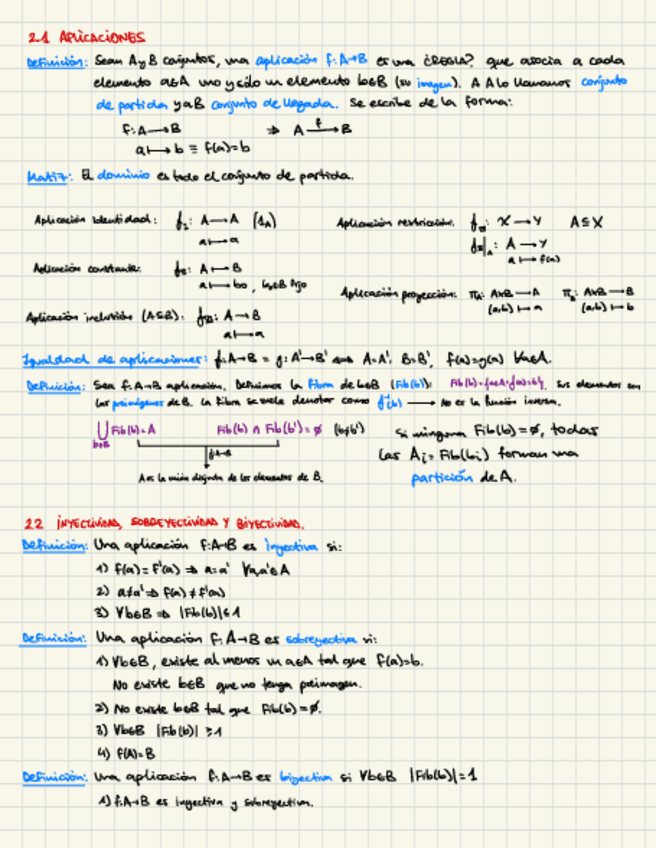 2.1 APLICACIONES
Definición: Sean A y B conjuntos, una aplicación f: A→B es una ¿REGLA? que asocia a cada
elemento a∈A uno y sólo un elemento b∈B (su imagen). A A lo llamamos conjunto
de partida y a B conjunto de llegada. Se escribe de la forma:
f: A → B ⇒ A →f B
a ↦ b ≡ f(a)=b
Matiz: El dominio es todo el conjunto de partida.
Aplicación identidad: f₁: A → A (1_A)
a ↦ a
Aplicación restricción: f: X → Y A⊆X
f|_A: A → Y
a ↦ f(a)
Aplicación constante: f: A → B
a ↦ b₀, b₀∈B fijo
Aplicación proyección: π_A: A×B → A π_B: A×B → B
(a,b) ↦ a (a,b) ↦ b
Aplicación inclusión (A⊆B): f: A → B
a ↦ a
Igualdad de aplicaciones: f: A→B = g: A'→B' ⟺ A=A', B=B', f(a)=g(a) ∀a∈A.
Definición: Sea f: A→B aplicación. Definimos la fibra de b∈B (Fib(b)): Fib(b)={a∈A: f(a)=b}. Sus elementos son
las preimágenes de B. La fibra se suele denotar como f⁻¹(b) → No es la función inversa.
⋃ Fib(b)=A Fib(b) ∩ Fib(b')=∅ (b≠b')
b∈B
f: A→B
A es la unión disjunta de los elementos de B.
Si ninguna Fib(b)=∅, todas
las A_i=Fib(b_i) forman una
partición de A.
2.2 INYECTIVIDAD, SOBREYECTIVIDAD Y BIYECTIVIDAD.
Definición: Una aplicación f: A→B es inyectiva si:
1) f(a)=f'(a) ⇒ a=a' ∀a,a'∈A
2) a≠a' ⇒ f(a)≠f'(a)
3) ∀b∈B ⇒ |Fib(b)|≤1
Definición: Una aplicación f: A→B es sobreyectiva si:
1) ∀b∈B, existe al menos un a∈A tal que f(a)=b.
No existe b∈B que no tenga preimagen.
2) No existe b∈B tal que Fib(b)=∅.
3) ∀b∈B |Fib(b)| ≥1
4) f(A)=B
Definición: Una aplicación f: A→B es biyectiva si ∀b∈B |Fib(b)|=1
1) f: A→B es inyectiva y sobreyectiva.